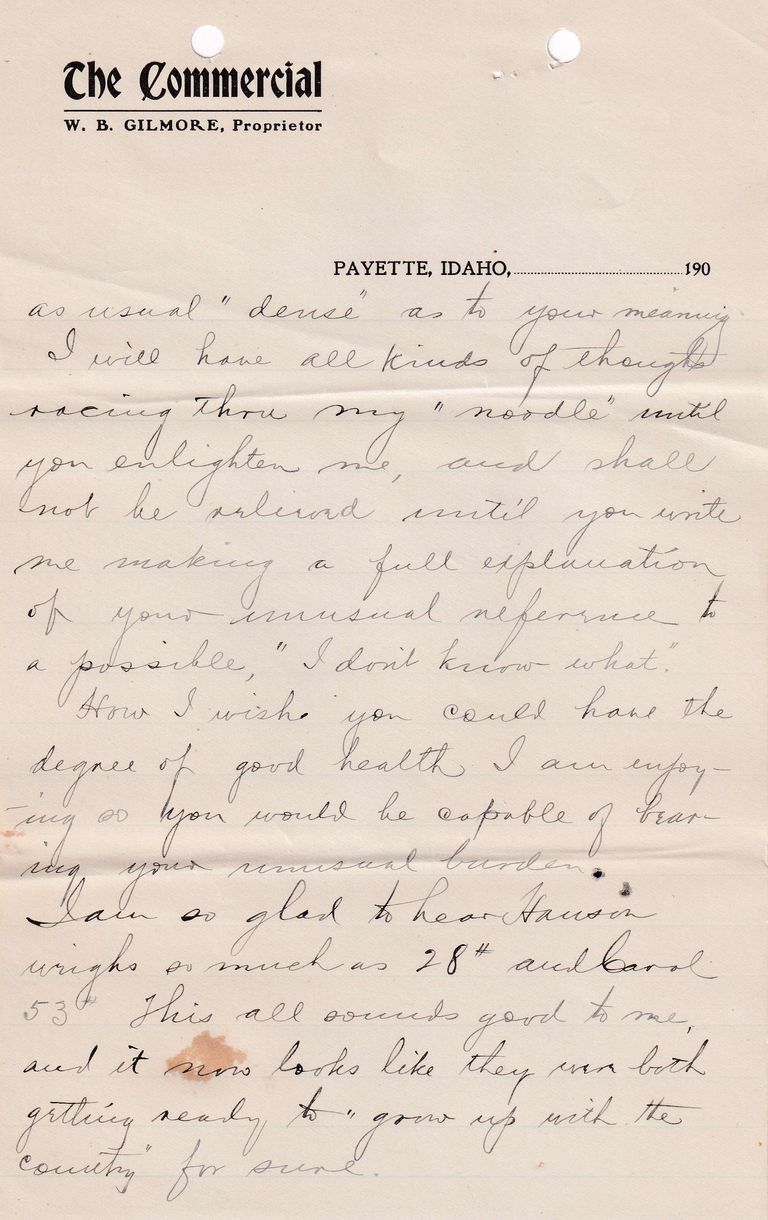 The Commercial
W. B. GILMORE, Proprietor
PAYETTE, IDAHO,..............................190
as usual "dense" as to your meaning.
I will have all kinds of thoughts
racing thru my "noodle" until
you enlighten me, and shall
not be relieved until you write
me making a full explanation
of your unusual reference to
a possible, "I don't know what".
How I wish you could have the
degree of good health I am enjoy-
-ing so you would be capable of bear-
ing your unusual burden.
I am so glad to hear Hanson
weighs so much as 28# and Carol
53# This all sounds good to me,
and it now looks like they were both
getting ready to "grow up with the
country" for sure.